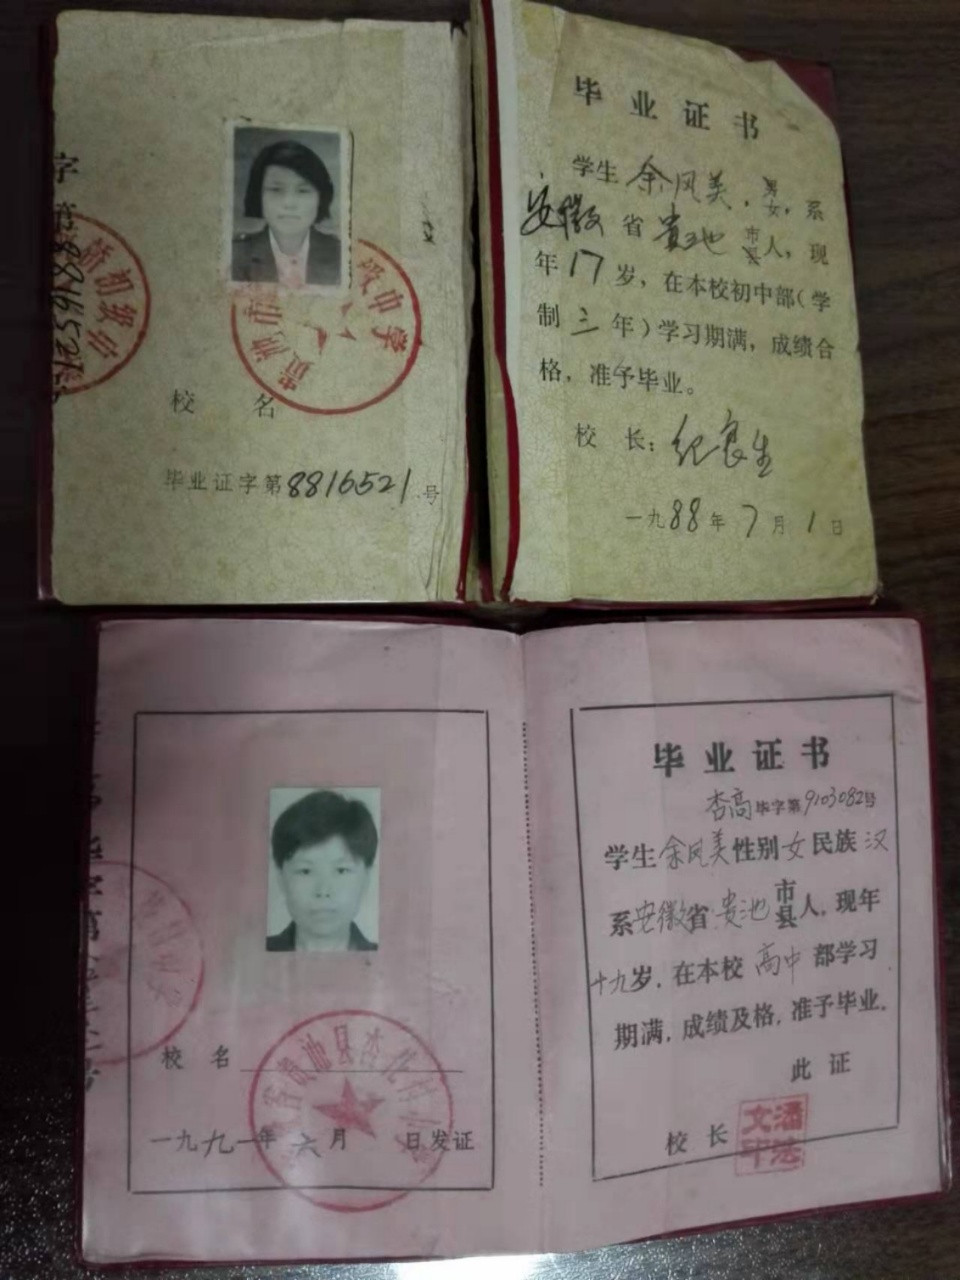 毕业证书
学生 余凤美，男女，系
安徽省贵池市县人，现
年17岁，在本校初中部（学
制三年）学习期满，成绩合
格，准予毕业。
校 长：纪良生
一九88年7月1日
贵池市
级中学
桥初级中
校 名
毕业证字第8816521号
毕业证书
杏高毕字第9103082号
学生余凤美性别女民族汉
系安徽省贵池市县人，现年
十九岁，在本校高中部学习
期满，成绩及格，准予毕业。
此 证
校 长
校 名
省贵池县杏花村
一九九一年六月 日发证